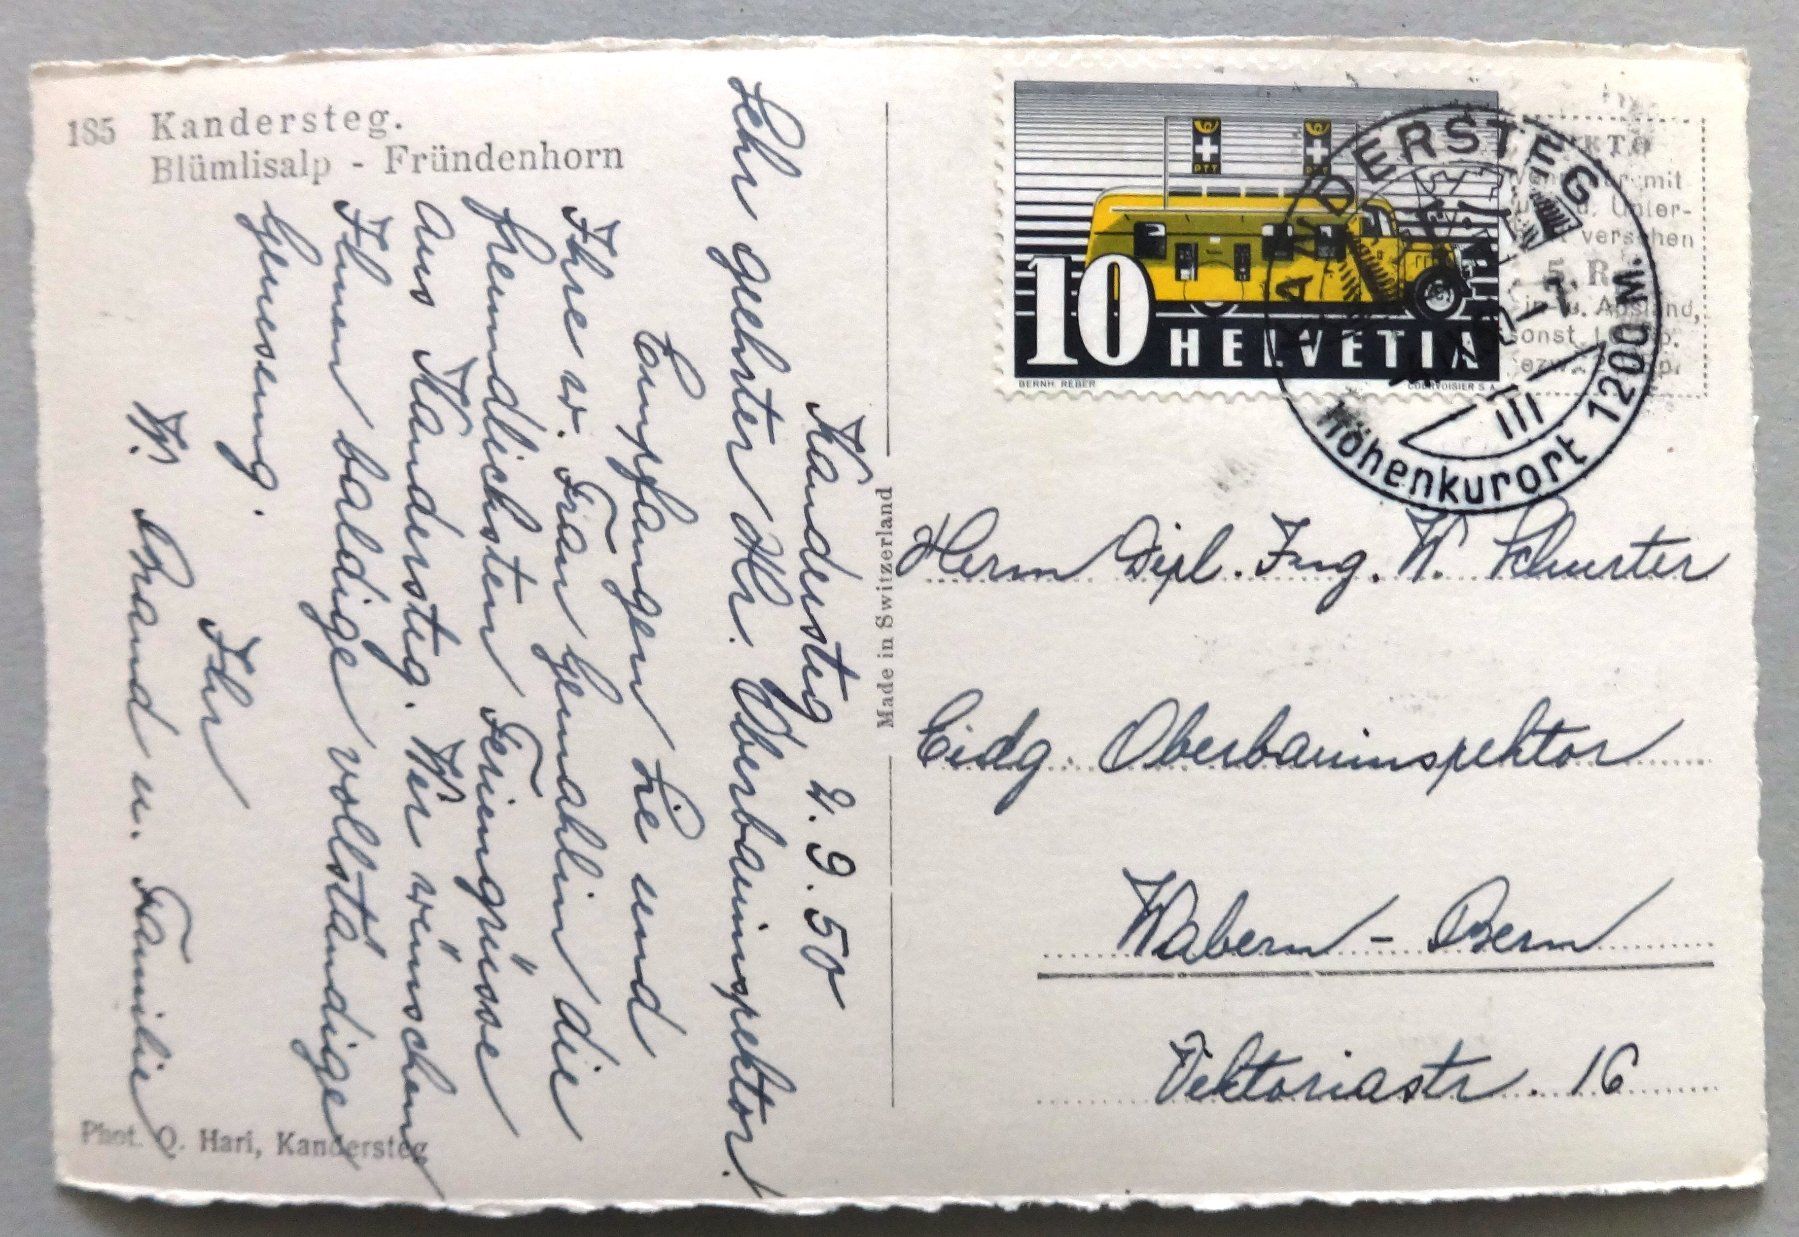 185 Kandersteg.
Blümlisalp - Fründenhorn
Kandersteg 2.9.50
Sehr geehrter Hr. Oberbauinspektor!
Empfangen Sie und
Ihre w. Frau Gemahlin die
freundlichsten Feriengrüsse
aus Kandersteg. Wir wünschen
Ihnen baldige vollständige
Genesung.
Ihr
W. Brand u. Familie
Phot. Q. Hari, Kandersteg
Made in Switzerland
PTT
PTT
10 HELVETIA
BERNH. REBER
COURVOISIER S.A.
KANDERSTEG
Höhenkurort 1200 M.
mit
Unter-
versehen
5
sonst
Herrn Dipl. Ing. W. Schurter
Eidg. Oberbauinspektor
Wabern - Bern
Viktoriastr. 16